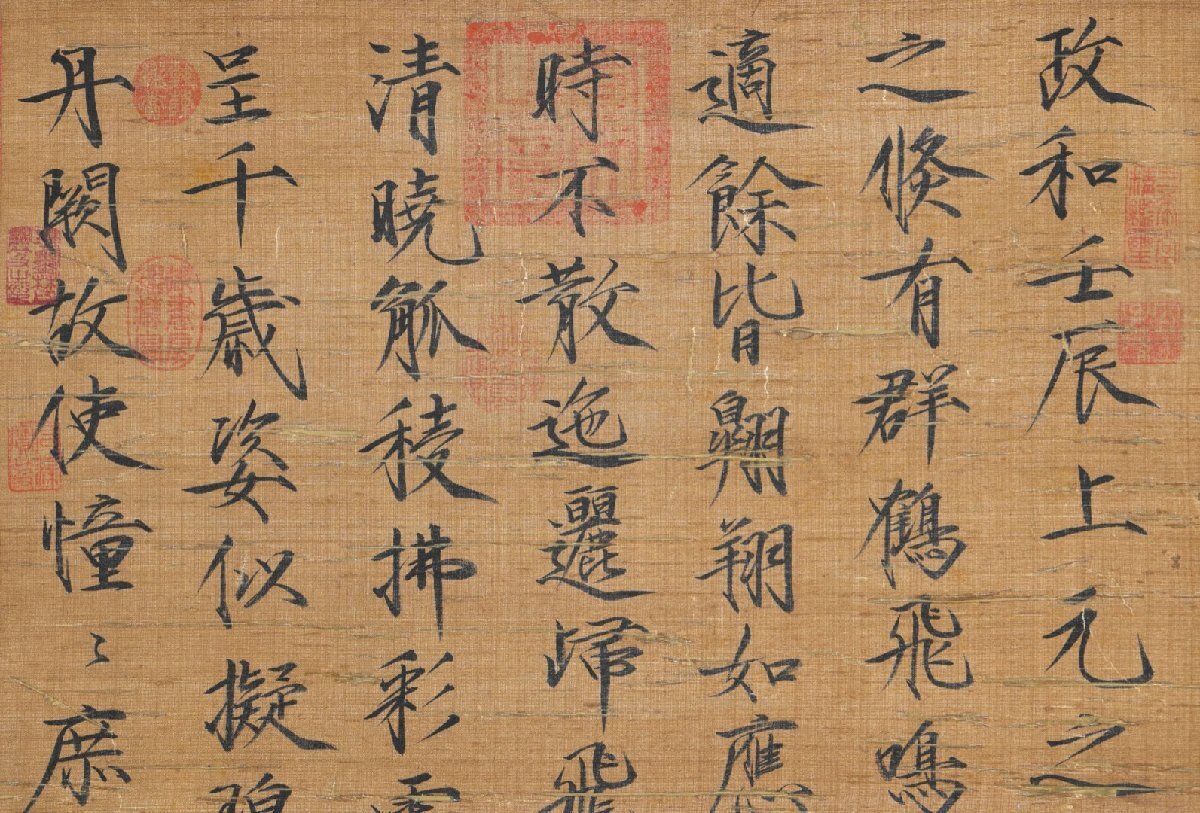 政和壬辰上元之
之倏有群鶴飛鳴
適餘皆翱翔如應
時不散迤邐歸飛
清曉觚稜拂彩
呈千歲姿似擬碧
丹闕故使憧〻庶